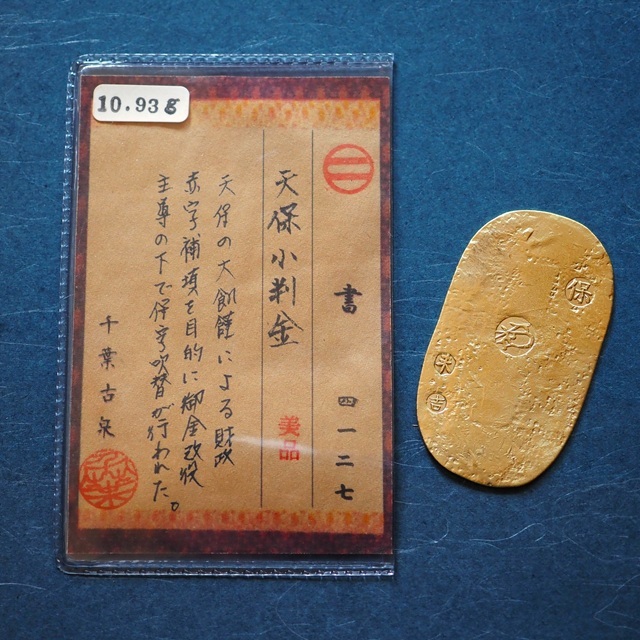 10.93g
二
書 四一二七
天保小判金
美品
天保の大飢饉による財政
赤字補填を目的に御金改役
主導の下で保字吹替が行われた。
千葉古泉
保